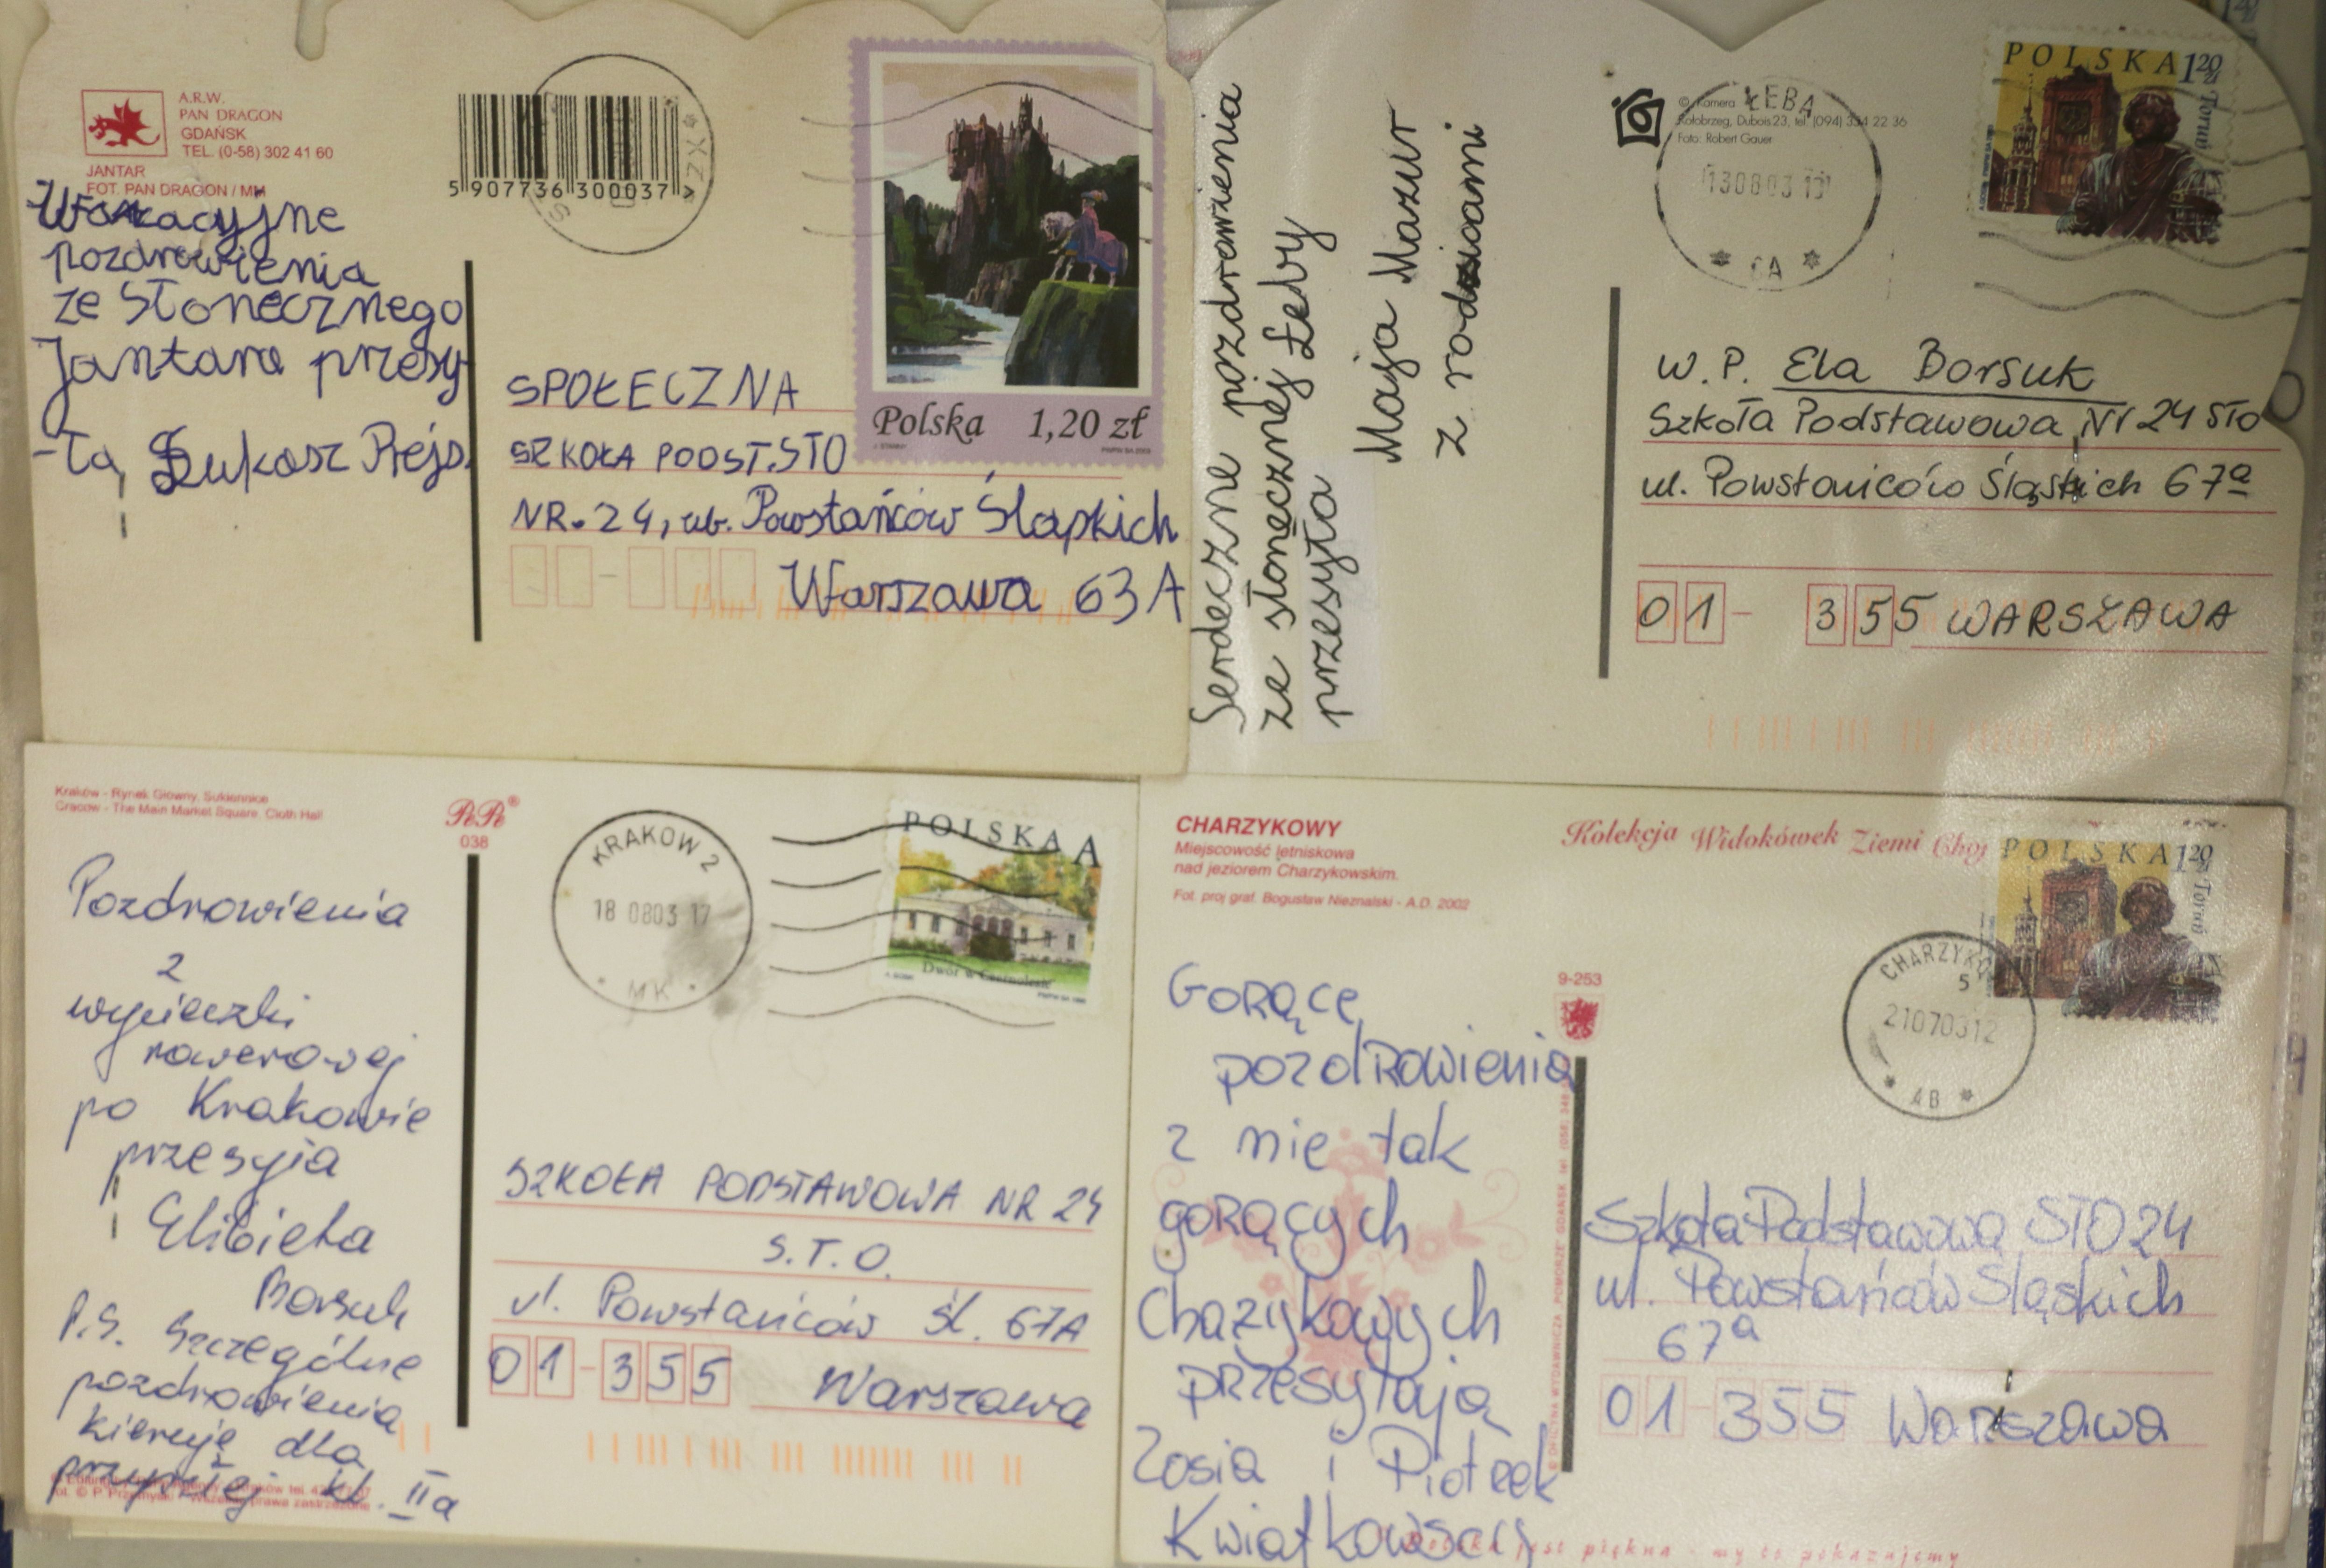 A.R.W.
PAN DRAGON
GDAŃSK
TEL. (0-58) 302 41 60
JANTAR
FOT. PAN DRAGON / MM
5 907736 300037 >
Wakacyjne
pozdrowienia
ze Słonecznego
Jantara przesy
-ła, Łukasz Rejs.
Polska 1,20 zł
SPOŁECZNA
SZKOŁA PODST. STO
NR. 24, ul. Powstańców Śląskich
Warszawa 63A
Serdeczne pozdrowienia
ze słonecznej Łeby
przesyła
Maja Mazur
z rodzicami
© Kamera
Kołobrzeg, Dubois 23, tel. (094) 354 22 36
Foto: Robert Gauer
ŁEBA
130803
CA
POLSKA 1 20 zł
Toruń
W. P. Ela Borsuk
Szkoła Podstawowa Nr 24 STO
ul. Powstańców Śląskich 67a
01-355 WARSZAWA
Kraków - Rynek Główny, Sukiennice
Cracow - The Main Market Square, Cloth Hall
038
KRAKOW 2
18 0803 17
MK
POLSKA A
Dwór w Czarnolesie
Pozdrowienia
z
wycieczki
rowerowej
po Krakowie
przesyła
Elżbieta
Borsuk
P.S. Szczególne
pozdrowienia
kieruję dla
przyszłej kl. IIa
SZKOŁA PODSTAWOWA NR 24
S.T.O.
ul. Powstańców Śl. 67A
01-355 Warszawa
CHARZYKOWY
Miejscowość letniskowa
nad jeziorem Charzykowskim.
Fot. proj graf. Bogusław Nieznalski - A.D. 2002
Kolekcja Widokówek Ziemi Choj
POLSKA 1 20 zł
Toruń
9-253
CHARZYKO
5
21070312
AB
Gorące
pozdrowienia
z nie tak
gorących
Chażykowych
przesyłają
Zosia i Piotrek
Kwiatkowscy
Szkoła Podstawowa STO 24
ul. Powstańców Śląskich
67a
01 355 Warszawa
Polska jest piękna - my to pokazujemy